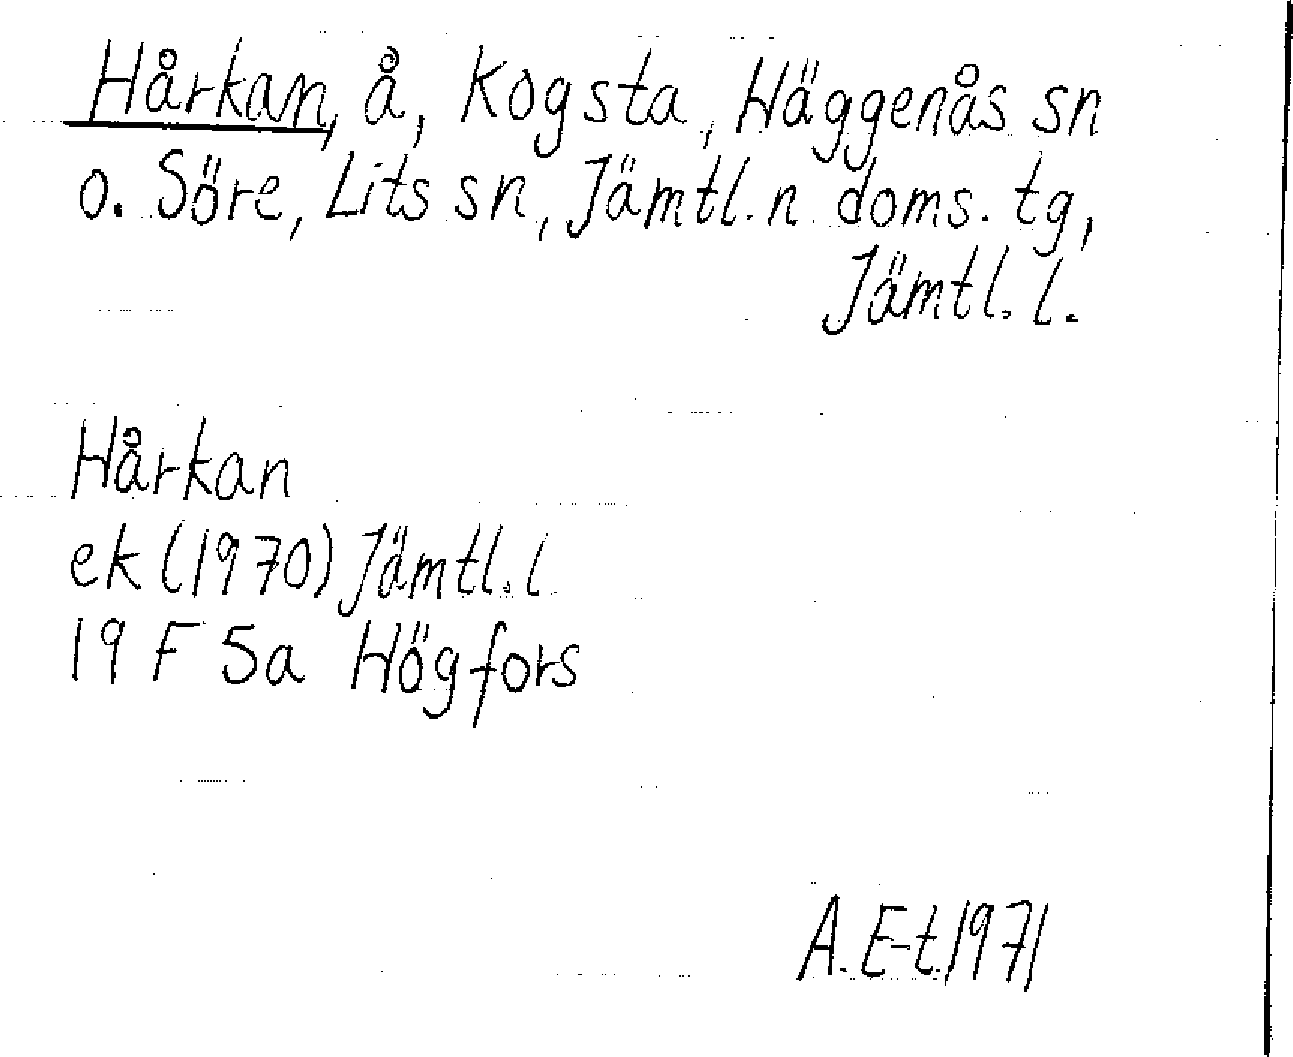 Hårkan, å, Kogsta, Häggenås sn
o. Söre, Lits sn, Jämtl. n. doms. tg,
Jämtl. l.
Hårkan
ek (1970) Jämtl. l.
19 F 5a Högfors
A. E-t. 1971